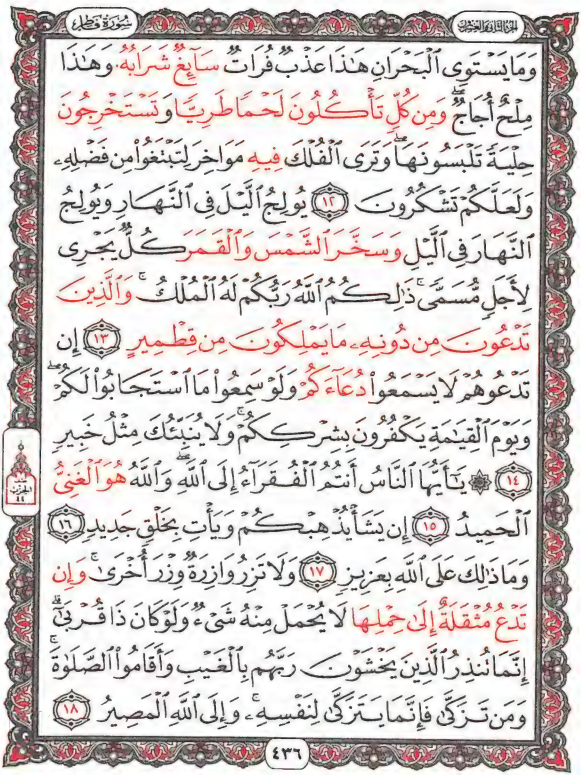 سُورَةُ فَاطِرٍ
الجزء الثاني والعشرون
وَمَا يَسْتَوِى ٱلْبَحْرَانِ هَٰذَا عَذْبٌ فُرَاتٌ سَآئِغٌ شَرَابُهُۥ وَهَٰذَا
مِلْحٌ أُجَاجٌ ۖ وَمِن كُلٍّ تَأْكُلُونَ لَحْمًا طَرِيًّا وَتَسْتَخْرِجُونَ
حِلْيَةً تَلْبَسُونَهَا ۖ وَتَرَى ٱلْفُلْكَ فِيهِ مَوَاخِرَ لِتَبْتَغُوا۟ مِن فَضْلِهِۦ
وَلَعَلَّكُمْ تَشْكُرُونَ ١٢ يُولِجُ ٱلَّيْلَ فِى ٱلنَّهَارِ وَيُولِجُ
ٱلنَّهَارَ فِى ٱلَّيْلِ وَسَخَّرَ ٱلشَّمْسَ وَٱلْقَمَرَ كُلٌّ يَجْرِى
لِأَجَلٍ مُّسَمًّى ۚ ذَٰلِكُمُ ٱللَّهُ رَبُّكُمْ لَهُ ٱلْمُلْكُ ۚ وَٱلَّذِينَ
تَدْعُونَ مِن دُونِهِۦ مَا يَمْلِكُونَ مِن قِطْمِيرٍ ١٣ إِن
تَدْعُوهُمْ لَا يَسْمَعُوا۟ دُعَآءَكُمْ وَلَوْ سَمِعُوا۟ مَا ٱسْتَجَابُوا۟ لَكُمْ ۖ
وَيَوْمَ ٱلْقِيَٰمَةِ يَكْفُرُونَ بِشِرْكِكُمْ ۚ وَلَا يُنَبِّئُكَ مِثْلُ خَبِيرٍ
١٤ ۞ يَٰٓأَيُّهَا ٱلنَّاسُ أَنتُمُ ٱلْفُقَرَآءُ إِلَى ٱللَّهِ ۖ وَٱللَّهُ هُوَ ٱلْغَنِىُّ
ٱلْحَمِيدُ ١٥ إِن يَشَأْ يُذْهِبْكُمْ وَيَأْتِ بِخَلْقٍ جَدِيدٍ ١٦
وَمَا ذَٰلِكَ عَلَى ٱللَّهِ بِعَزِيزٍ ١٧ وَلَا تَزِرُ وَازِرَةٌ وِزْرَ أُخْرَىٰ ۚ وَإِن
تَدْعُ مُثْقَلَةٌ إِلَىٰ حِمْلِهَا لَا يُحْمَلْ مِنْهُ شَىْءٌ وَلَوْ كَانَ ذَا قُرْبَىٰٓ ۗ
إِنَّمَا تُنذِرُ ٱلَّذِينَ يَخْشَوْنَ رَبَّهُم بِٱلْغَيْبِ وَأَقَامُوا۟ ٱلصَّلَوٰةَ ۚ
وَمَن تَزَكَّىٰ فَإِنَّمَا يَتَزَكَّىٰ لِنَفْسِهِۦ ۚ وَإِلَى ٱللَّهِ ٱلْمَصِيرُ ١٨
نصف
الحزب
٤٤
٤٣٦